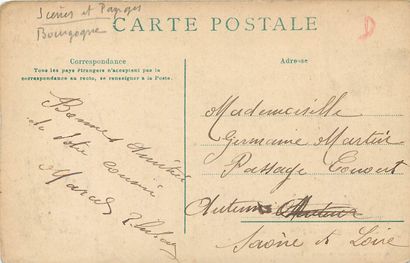 Scènes et Paysages
Bourgogne
CARTE POSTALE
Correspondance
Tous les pays étrangers n'acceptent pas la
correspondance au recto, se renseigner à la Poste.
Adresse
Bonnes Amitiés
de votre cousin
Marcel
Mademoiselle
Germaine Martin
Passage Couvert
Autun
Saône et Loire
D